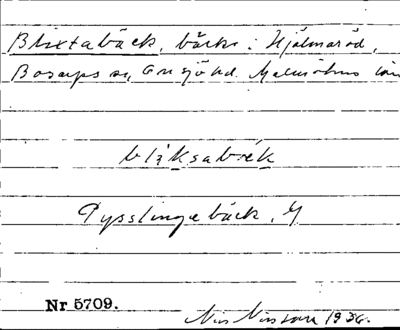 Blixtabäck, bäck i Hjälmaröd,
Bosarps sn, Onsjö hd. Malmöhus län
blìksabɛk
Pysslingabäck, 4
Nr 5709.
Nils Nilsson 1936.